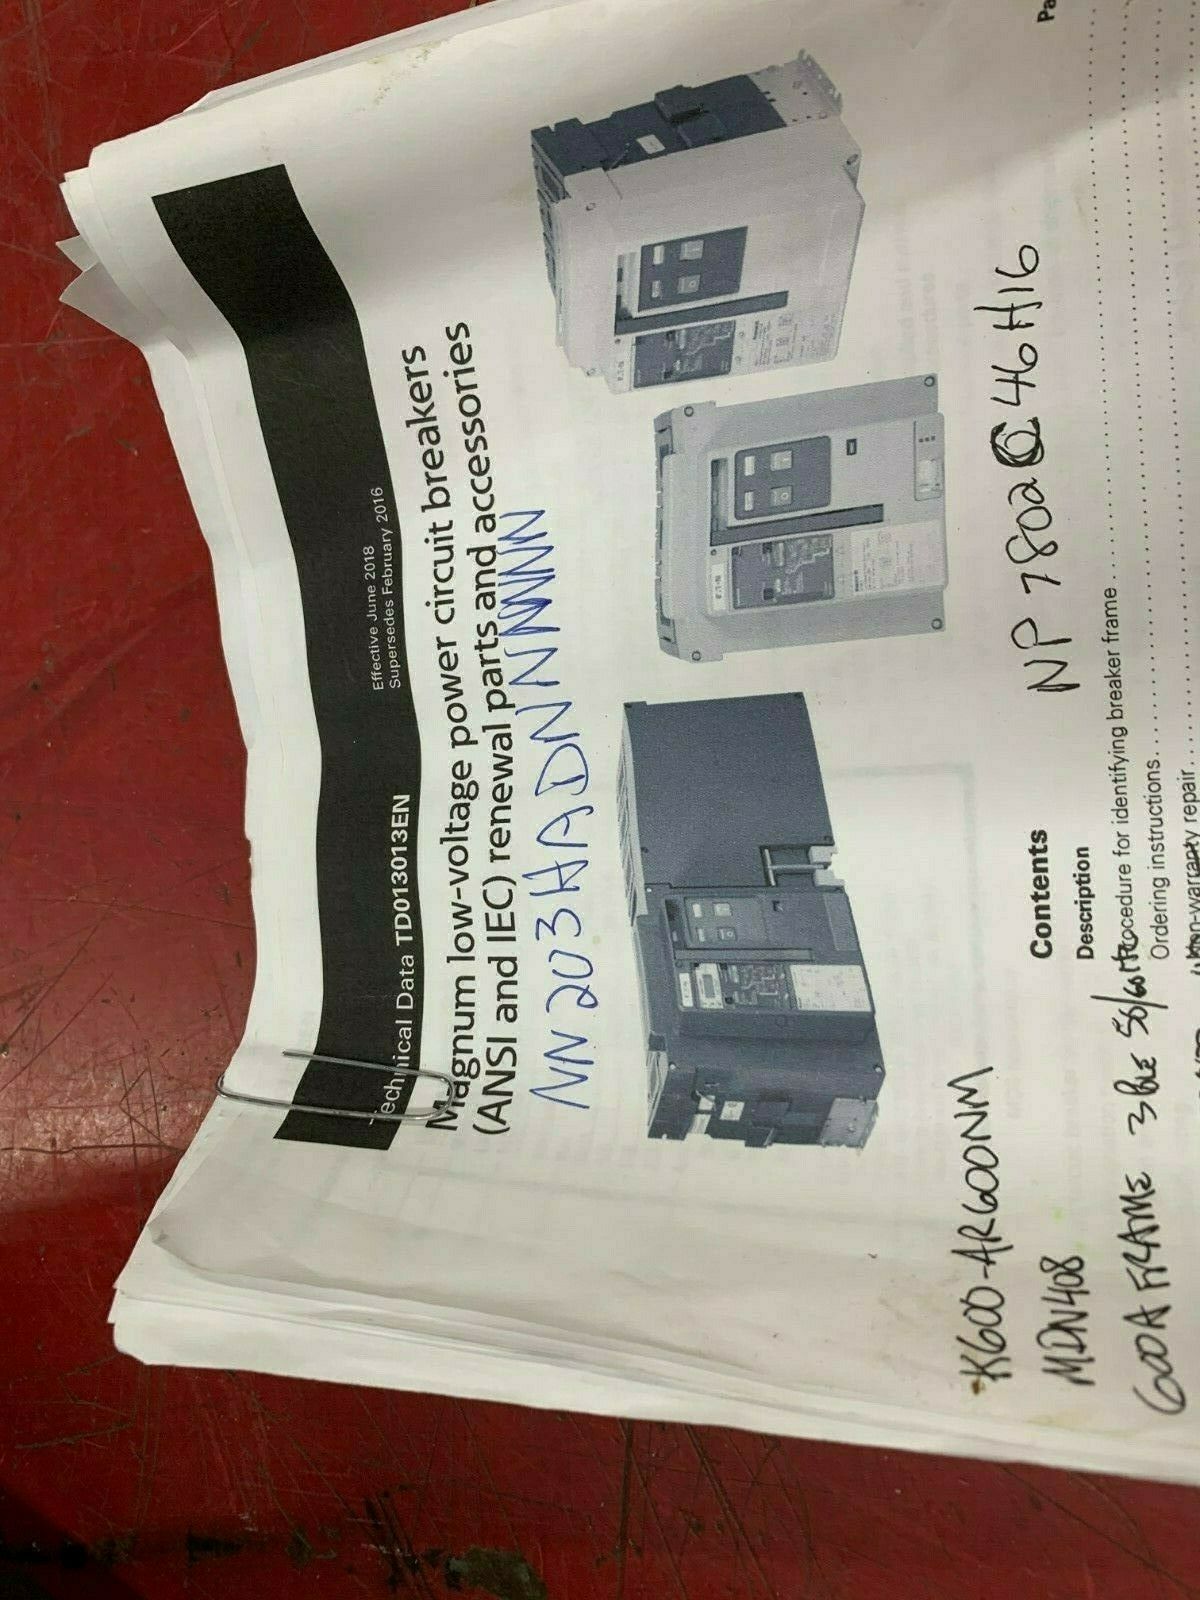 Effective June 2018
Supersedes February 2016
Technical Data TD013013EN
Magnum low-voltage power circuit breakers
(ANSI and IEC) renewal parts and accessories
NN203HADNNNNNN
K600-AR600NM
MDN408
NP 7802C46H16
Contents
Description
Pa
600A FRAME 3
Procedure for identifying breaker frame
Ordering instructions
Non-warranty repair